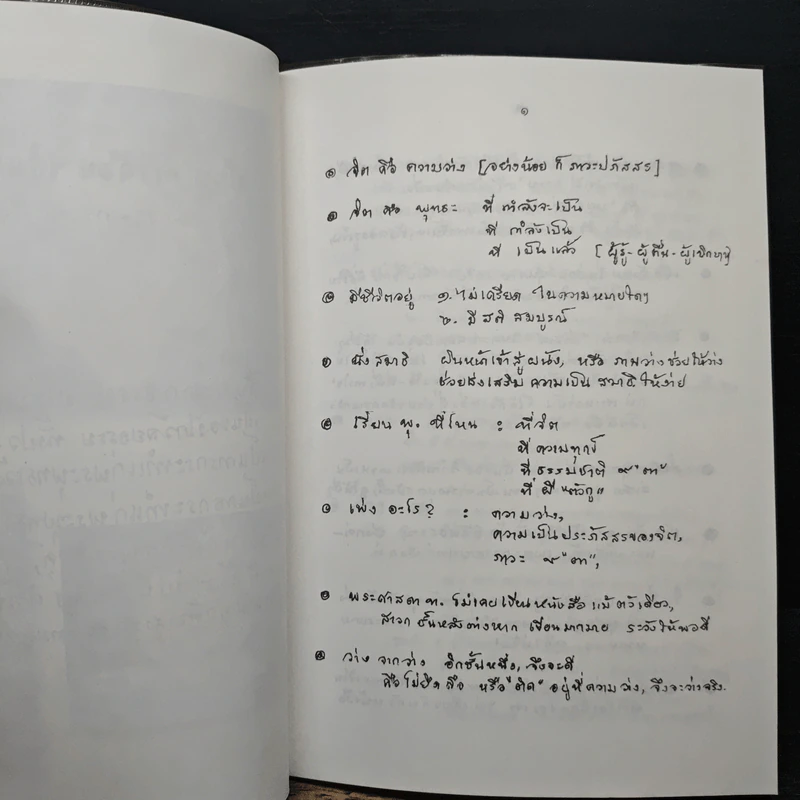 ๑
จิต คือ ความว่าง [อย่างน้อย ก็ ภาวะปภัสสร]
จิต คือ พุทธะ ที่ กำลังจะเป็น
ที่ กำลังเป็น
ที่ เป็นแล้ว [ผู้รู้-ผู้ตื่น-ผู้เบิกบาน]
มีชีวิตอยู่ ๑. ไม่เครียด ในความหมายใดๆ
๒. มีสติ สมบูรณ์
นั่งสมาธิ ผินหน้าเข้าสู่ผนัง, หรือ ภาพว่าง ช่วยให้ว่าง
ช่วยส่งเสริม ความเป็น สมาธิ ให้ง่าย
เรียน พุ. ที่ไหน : ที่จิต
ที่ ความทุกข์
ที่ ธรรมชาติ "ตา"
ที่ ผี "ตัวกู"
เพ่ง อะไร? : ความว่าง,
ความเป็นประภัสสรของจิต,
ภาวะ "ตา",
พระศาสดา ท. ไม่เคยเขียนหนังสือ แม้ตัวเดียว,
สาวก ชั้นหลังต่างหาก เขียนมากมาย ระวังให้พอดี
ว่าง จากว่าง อีกชั้นหนึ่ง, จึงจะดี
คือไม่ยึด ถือ หรือ "ติด" อยู่ที่ความว่าง, จึงจะว่างจริง.